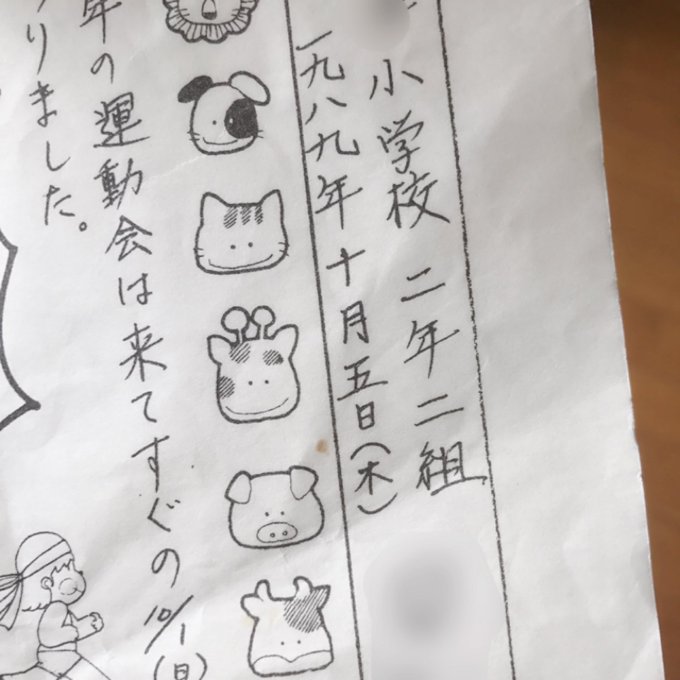 小学校 二年二組
一九八九年十月五日(木)
年の運動会は来てすぐの10/1(日)
りました。